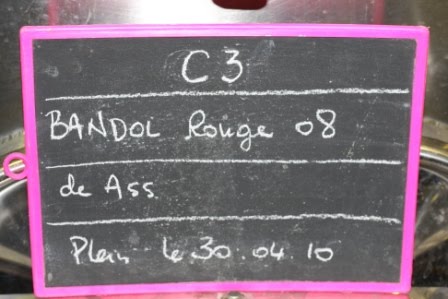 C3
BANDOL Rouge 08
de Ass
Plein le 30.04.10